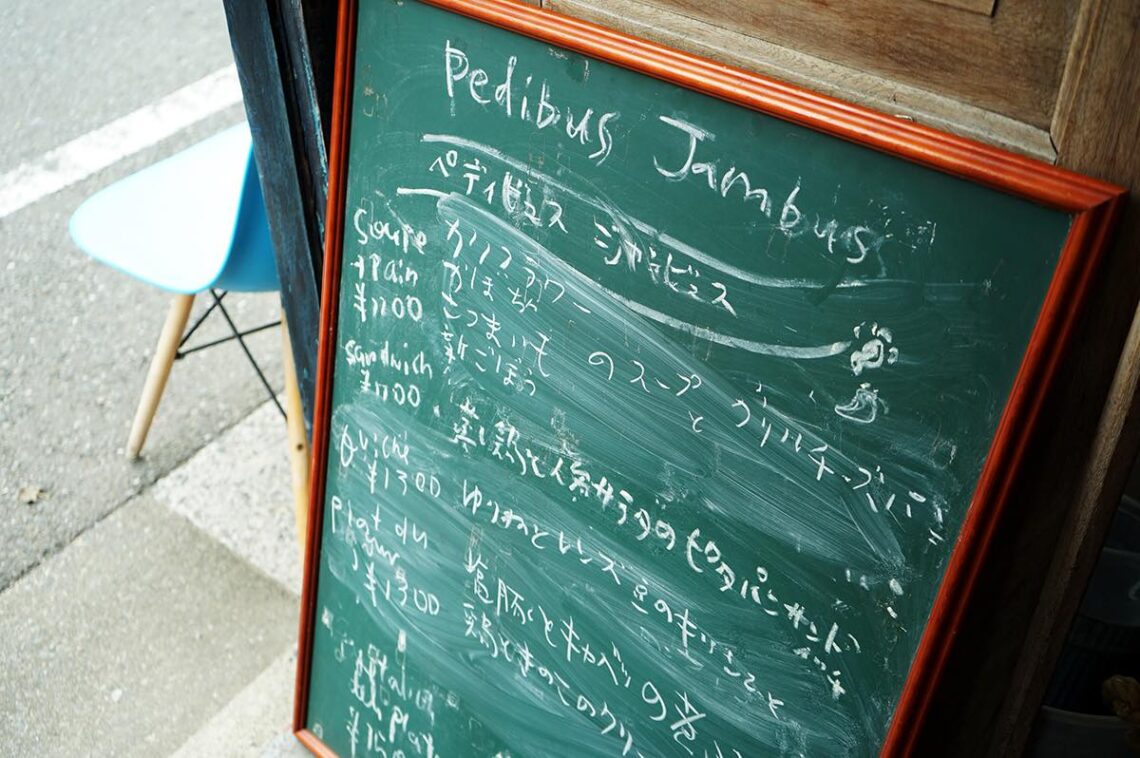 Pedibus Jambus
ペディビュス ジャンビュス
Soupe
+Pain
¥1100
カリフラワー
かぼちゃ
さつまいも
新ごぼう
のスープ
と グリルチーズパニーニ
Sandwich
¥1100
蒸し鶏と人参サラダのピタパンサンドイッチ
Quiche
¥1300
ゆりねとレンズ豆のキッシュと
Plat du
jour
¥1300
豚肉とキャベツの
鶏ときのこのクリ
Plat